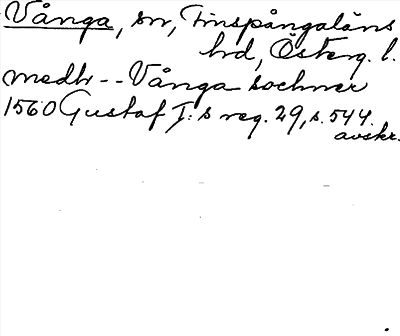 Vånga, sn, Finspångaläns
hd, Österg. l.
medh -- Vånga sochner
1560 Gustaf I:s reg. 29, s. 544.
avskr.